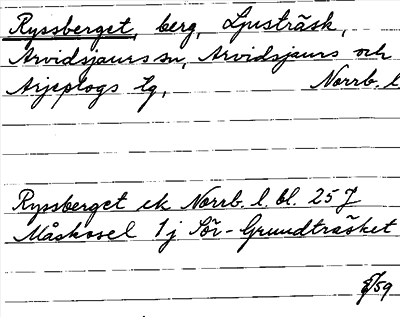 Ryssberget, berg, Ljusträsk,
Arvidsjaurs sn, Arvidsjaurs och
Arjeplogs lg, Norrb. l
Ryssberget ek Norrb. l. bl. 25 J
Måskosel 1 j Sör-Grundträsket
/59